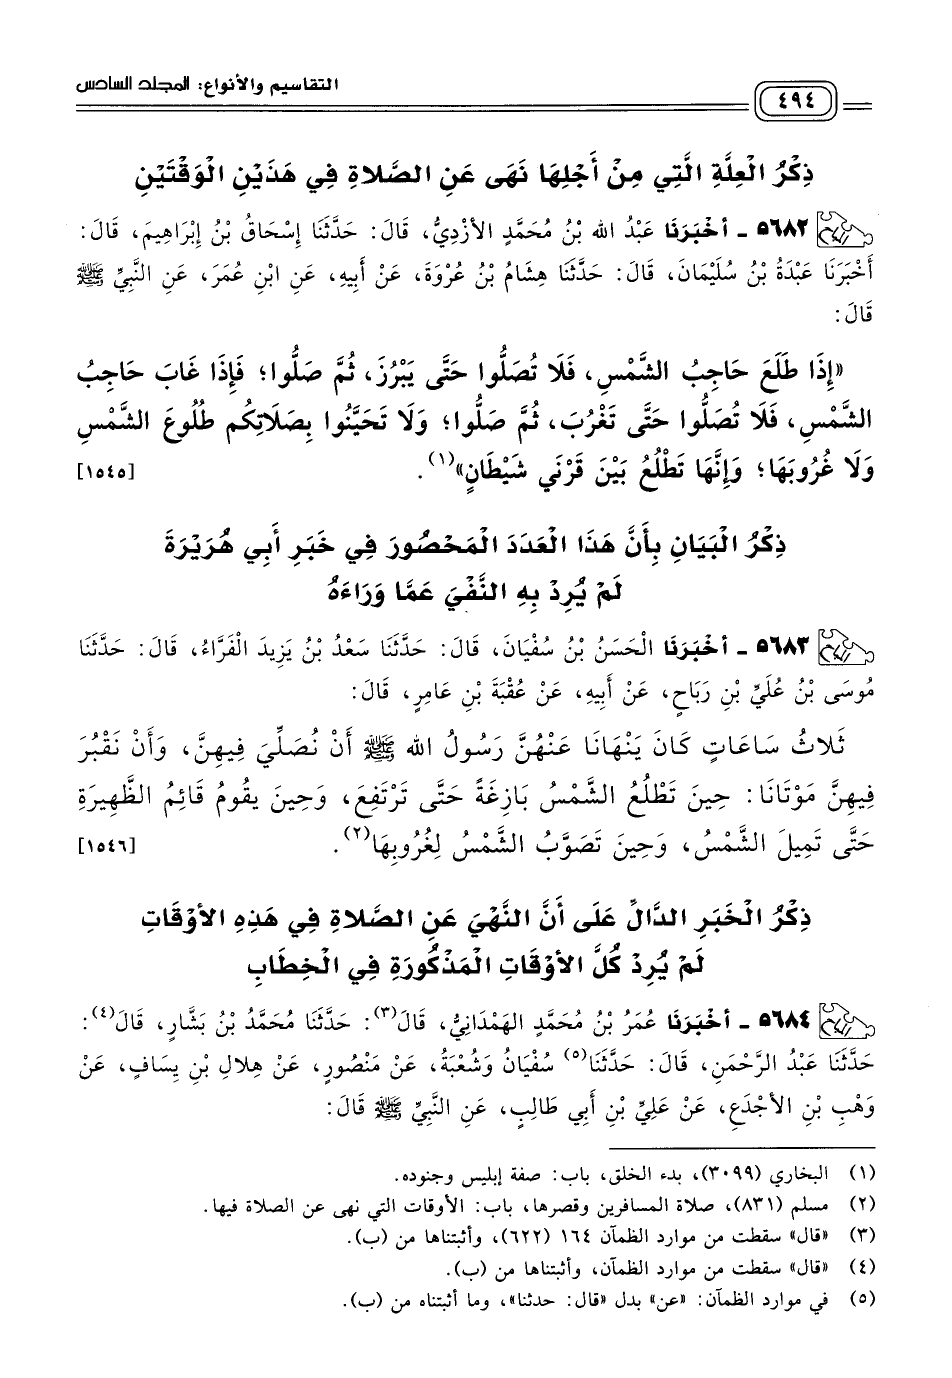 ٤٩٤ التقاسيم والأنواع: المجلد السادس
ذِكْرُ الْعِلَّةِ الَّتِي مِنْ أَجْلِهَا نَهَى عَنِ الصَّلَاةِ فِي هَذَيْنِ الْوَقْتَيْنِ
٥٦٨٢ - أَخْبَرَنَا عَبْدُ الله بْنُ مُحَمَّدٍ الأَزْدِيُّ، قَالَ: حَدَّثَنَا إِسْحَاقُ بْنُ إِبْرَاهِيمَ، قَالَ:
أَخْبَرَنَا عَبْدَةُ بْنُ سُلَيْمَانَ، قَالَ: حَدَّثَنَا هِشَامُ بْنُ عُرْوَةَ، عَنْ أَبِيهِ، عَنِ ابْنِ عُمَرَ، عَنِ النَّبِيِّ ﷺ
قَالَ:
«إِذَا طَلَعَ حَاجِبُ الشَّمْسِ، فَلَا تُصَلُّوا حَتَّى يَبْرُزَ، ثُمَّ صَلُّوا؛ فَإِذَا غَابَ حَاجِبُ
الشَّمْسِ، فَلَا تُصَلُّوا حَتَّى تَغْرُبَ، ثُمَّ صَلُّوا؛ وَلَا تَحَيَّنُوا بِصَلَاتِكُم طُلُوعَ الشَّمْسِ
وَلَا غُرُوبَهَا؛ وَإِنَّهَا تَطْلُعُ بَيْنَ قَرْنَي شَيْطَانٍ»(١). [١٥٤٥]
ذِكْرُ الْبَيَانِ بِأَنَّ هَذَا الْعَدَدَ الْمَحْصُورَ فِي خَبَرِ أَبِي هُرَيْرَةَ
لَمْ يُرِدْ بِهِ النَّفْيَ عَمَّا وَرَاءَهُ
٥٦٨٣ - أَخْبَرَنَا الْحَسَنُ بْنُ سُفْيَانَ، قَالَ: حَدَّثَنَا سَعْدُ بْنُ يَزِيدَ الْفَرَّاءُ، قَالَ: حَدَّثَنَا
مُوسَى بْنُ عُلَيِّ بْنِ رَبَاحٍ، عَنْ أَبِيهِ، عَنْ عُقْبَةَ بْنِ عَامِرٍ، قَالَ:
ثَلَاثُ سَاعَاتٍ كَانَ يَنْهَانَا عَنْهُنَّ رَسُولُ الله ﷺ أَنْ نُصَلِّيَ فِيهِنَّ، وَأَنْ نَقْبُرَ
فِيهِنَّ مَوْتَانَا: حِينَ تَطْلُعُ الشَّمْسُ بَازِغَةً حَتَّى تَرْتَفِعَ، وَحِينَ يَقُومُ قَائِمُ الظَّهِيرَةِ
حَتَّى تَمِيلَ الشَّمْسُ، وَحِينَ تَصَوَّبُ الشَّمْسُ لِغُرُوبِهَا(٢). [١٥٤٦]
ذِكْرُ الْخَبَرِ الدَّالِّ عَلَى أَنَّ النَّهْيَ عَنِ الصَّلَاةِ فِي هَذِهِ الأَوْقَاتِ
لَمْ يُرِدْ كُلَّ الأَوْقَاتِ الْمَذْكُورَةِ فِي الْخِطَابِ
٥٦٨٤ - أَخْبَرَنَا عُمَرُ بْنُ مُحَمَّدٍ الهَمْدَانِيُّ، قَالَ(٣): حَدَّثَنَا مُحَمَّدُ بْنُ بَشَّارٍ، قَالَ(٤):
حَدَّثَنَا عَبْدُ الرَّحْمَنِ، قَالَ: حَدَّثَنَا(٥) سُفْيَانُ وَشُعْبَةُ، عَنْ مَنْصُورٍ، عَنْ هِلَالِ بْنِ يِسَافٍ، عَنْ
وَهْبِ بْنِ الأَجْدَعِ، عَنْ عَلِيِّ بْنِ أَبِي طَالِبٍ، عَنِ النَّبِيِّ ﷺ قَالَ:
(١) البخاري (٣٠٩٩)، بدء الخلق، باب: صفة إبليس وجنوده.
(٢) مسلم (٨٣١)، صلاة المسافرين وقصرها، باب: الأوقات التي نهى عن الصلاة فيها.
(٣) «قال» سقطت من موارد الظمآن ١٦٤ (٦٢٢)، وأثبتناها من (ب).
(٤) «قال» سقطت من موارد الظمآن، وأثبتناها من (ب).
(٥) في موارد الظمآن: «عن» بدل «قال: حدثنا»، وما أثبتناه من (ب).